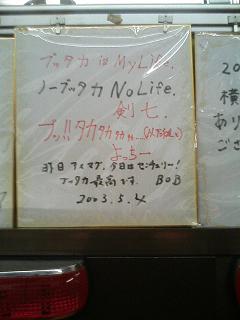 ブッタカ is My Life.
ノーブッタカ No Life.
剣七.
ブッ!!タカタカタカ
よっちー
昨日アイスタ、今日はセンチュリー!
ブッタカ最高です。 BOB
2003.5.4
20
横
あり
ござ